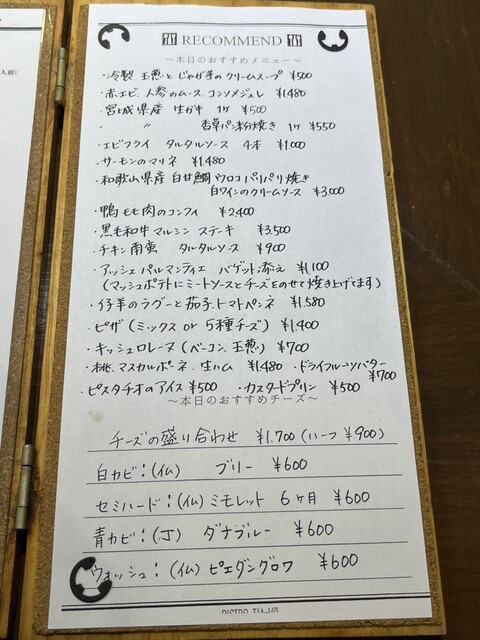 人前)
RECOMMEND
〜本日のおすすめメニュー〜
・冷製 玉葱とじゃが芋のクリームスープ ¥500
・赤エビ 人参のムース コンソメジュレ ¥1,480
・宮城県産 生ガキ 1ヶ ¥500
・ 〃 香草パン粉焼き 1ヶ ¥550
・エビフライ タルタルソース 4本 ¥1,000
・サーモンのマリネ ¥1,480
・和歌山県産 白甘鯛 ウロコパリパリ焼き
白ワインのクリームソース ¥3,000
・鴨モモ肉のコンフィ ¥2,400
・黒毛和牛マルシン ステーキ ¥3,500
・チキン南蛮 タルタルソース ¥900
・アッシェ パルマンティエ バゲット添え ¥1,100
(マッシュポテトにミートソースとチーズをのせて焼き上げてます)
・仔羊のラグーと茄子、トマトペンネ ¥1,580
・ピザ (ミックス or 5種チーズ) ¥1,400
・キッシュロレーヌ (ベーコン、玉葱) ¥700
・桃、マスカルポーネ、生ハム ¥1,480 ・ドライフルーツバター
¥700
・ピスタチオのアイス ¥500 ・カスタードプリン ¥500
〜本日のおすすめチーズ〜
チーズの盛り合わせ ¥1,700 (ハーフ ¥900)
白カビ:(仏) ブリー ¥600
セミハード:(仏) ミモレット 6ヶ月 ¥600
青カビ:(丁) ダナブルー ¥600
ウォッシュ:(仏) ピエダングロワ ¥600